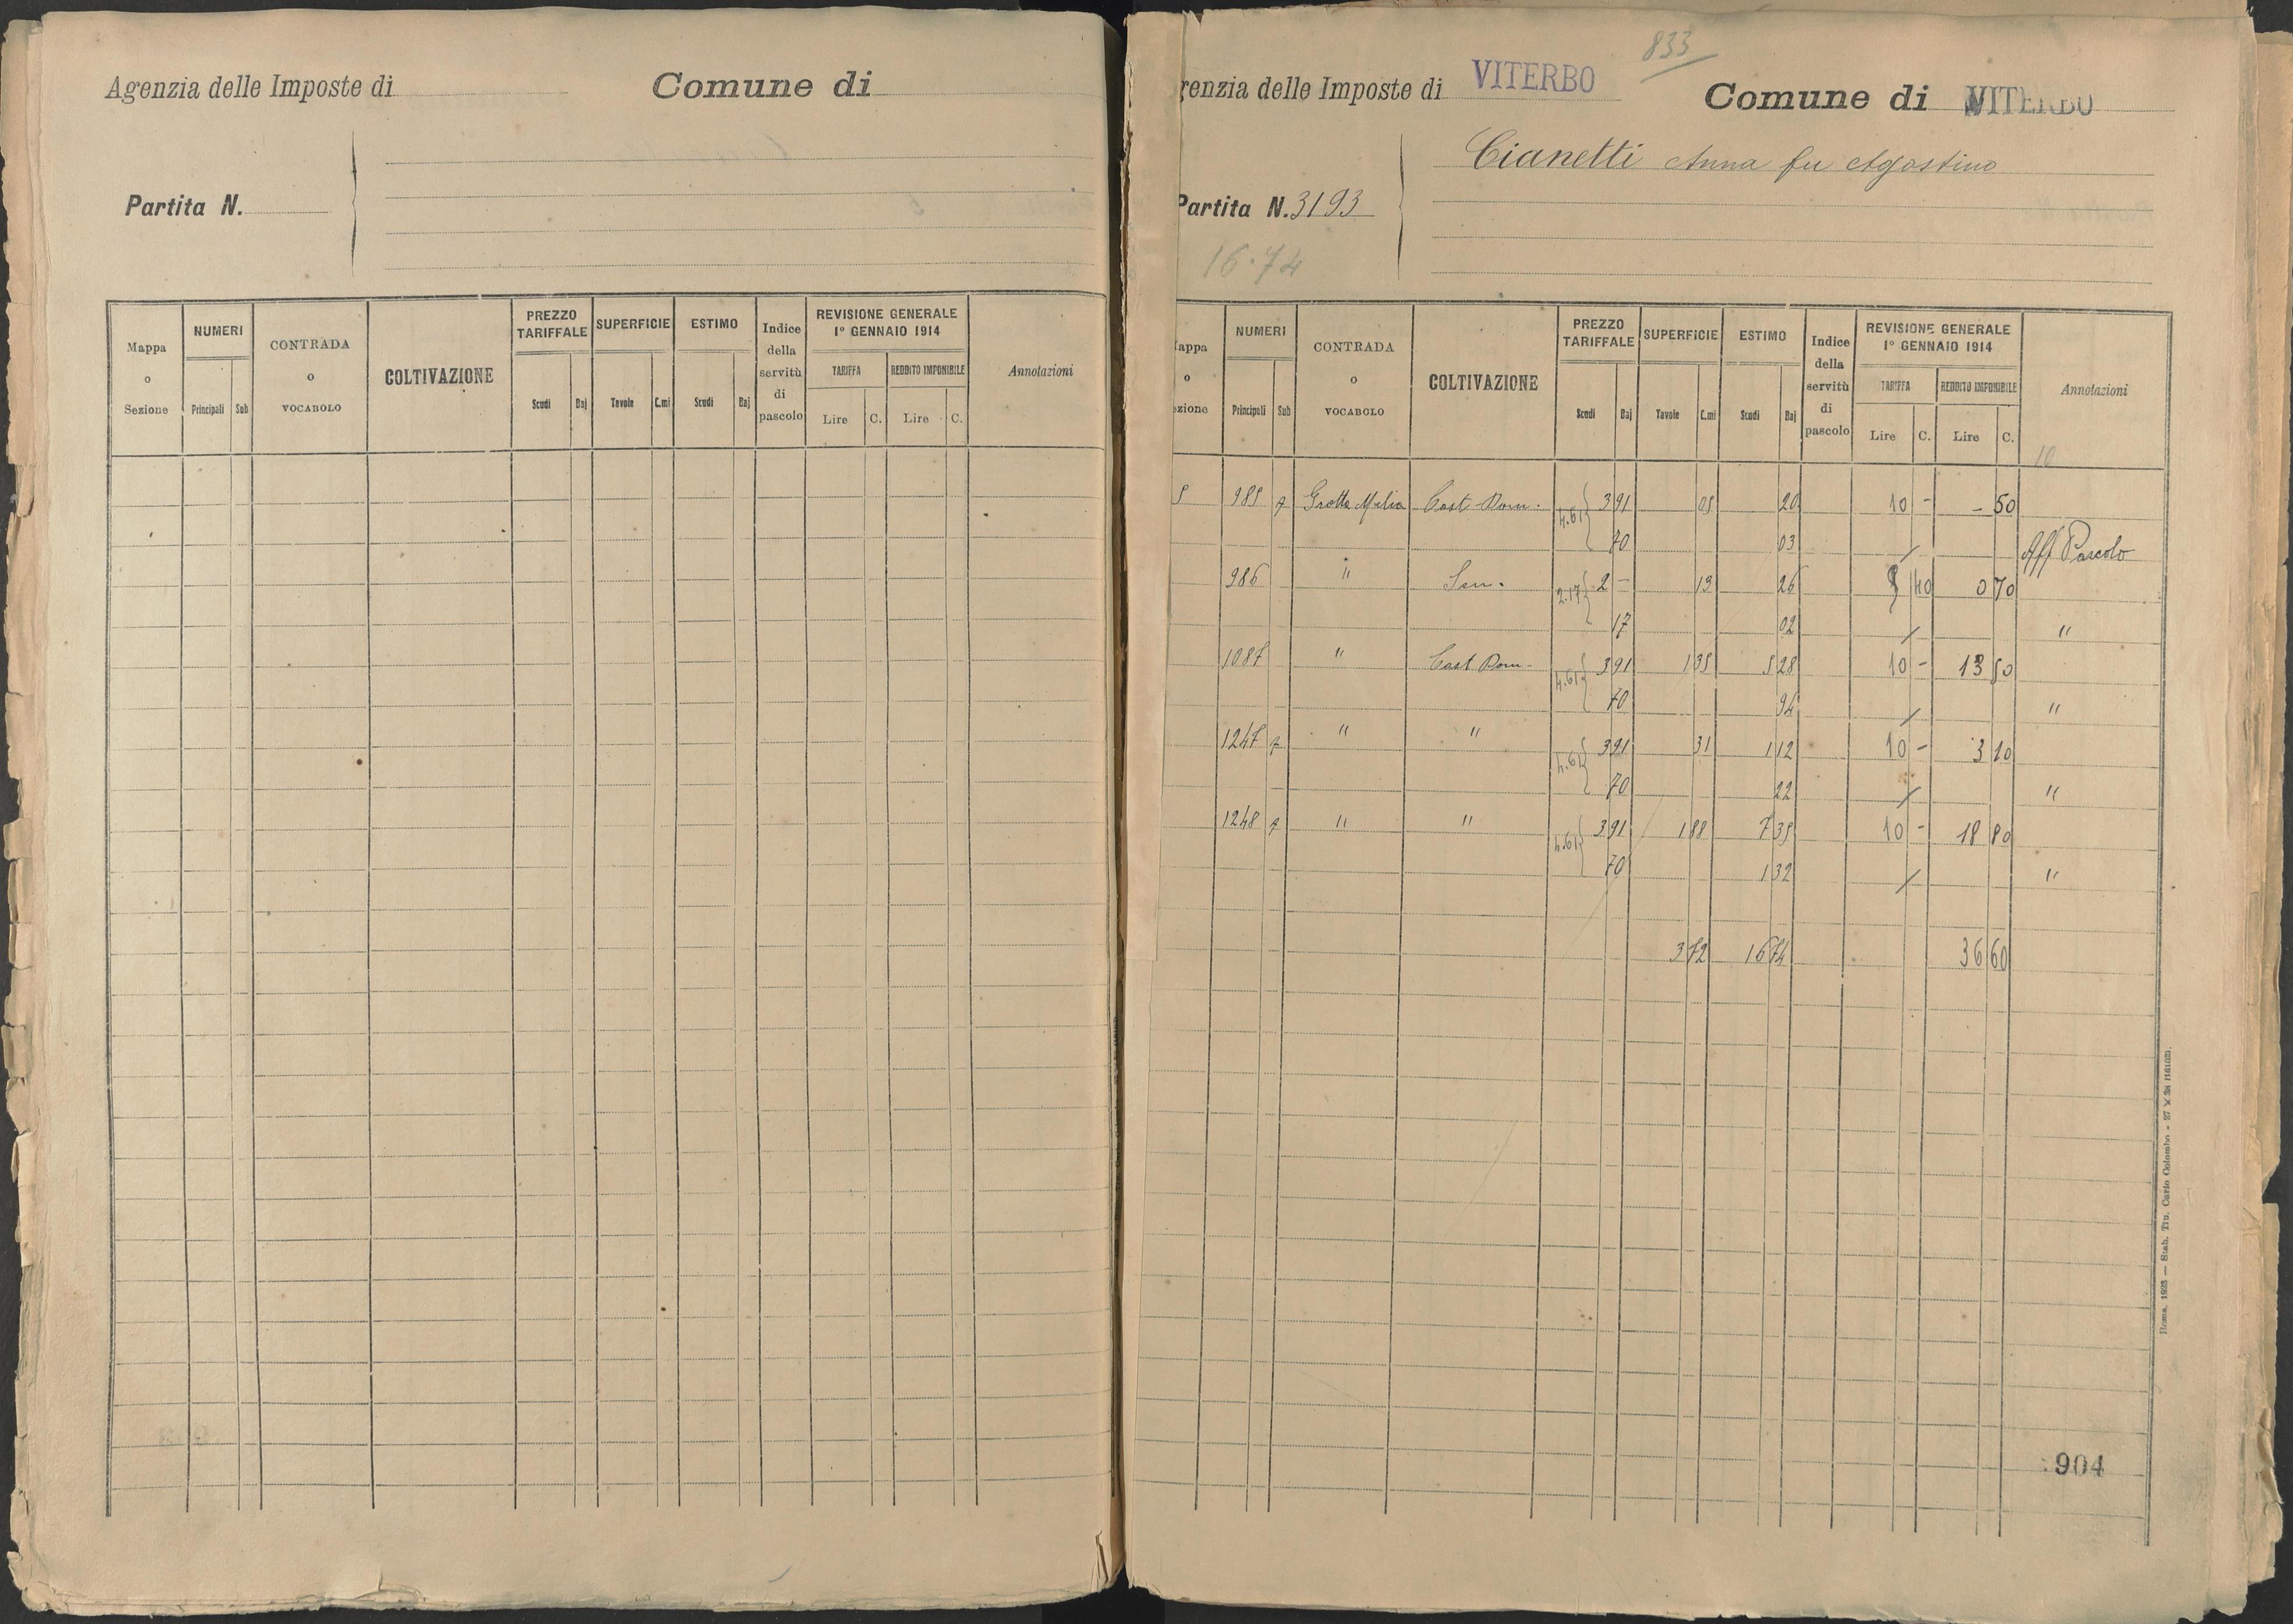 Agenzia delle Imposte di
Comune di
Partita N.
Mappa o Sezione | NUMERI Principali Sub | CONTRADA o VOCABOLO | COLTIVAZIONE | PREZZO TARIFFALE Scudi Baj | SUPERFICIE Tavole C.mi | ESTIMO Scudi Baj | Indice della servitù di pascolo | REVISIONE GENERALE 1° GENNAIO 1914 TARIFFA Lire C. REDDITO IMPONIBILE Lire C. | Annotazioni
833
genzia delle Imposte di VITERBO
Comune di VITERBO
Cianetti Anna fu Agostino
Partita N. 3193
16.74
Mappa o Sezione | NUMERI Principali Sub | CONTRADA o VOCABOLO | COLTIVAZIONE | PREZZO TARIFFALE Scudi Baj | SUPERFICIE Tavole C.mi | ESTIMO Scudi Baj | Indice della servitù di pascolo | REVISIONE GENERALE 1° GENNAIO 1914 TARIFFA Lire C. REDDITO IMPONIBILE Lire C. | Annotazioni
10
5 985 Grotta Cast Dom. 4.61 3 91 05 20 10 - - 50
70 03 Aff Pascolo
986 " Sem. 2.17 2 - 13 26 5 40 0 70
17 02 "
1087 " Cast Dom - 4.61 3 91 1 35 5 28 10 - 13 50
70 94 "
1247 " " 4.61 3 91 31 1 12 10 - 3 10
70 22 "
1248 " " 4.61 3 91 1 88 7 35 10 - 18 80
70 1 32 "
3 72 16 74 36 60
904
Roma, 1923 — Stab. Tip. Carlo Colombo